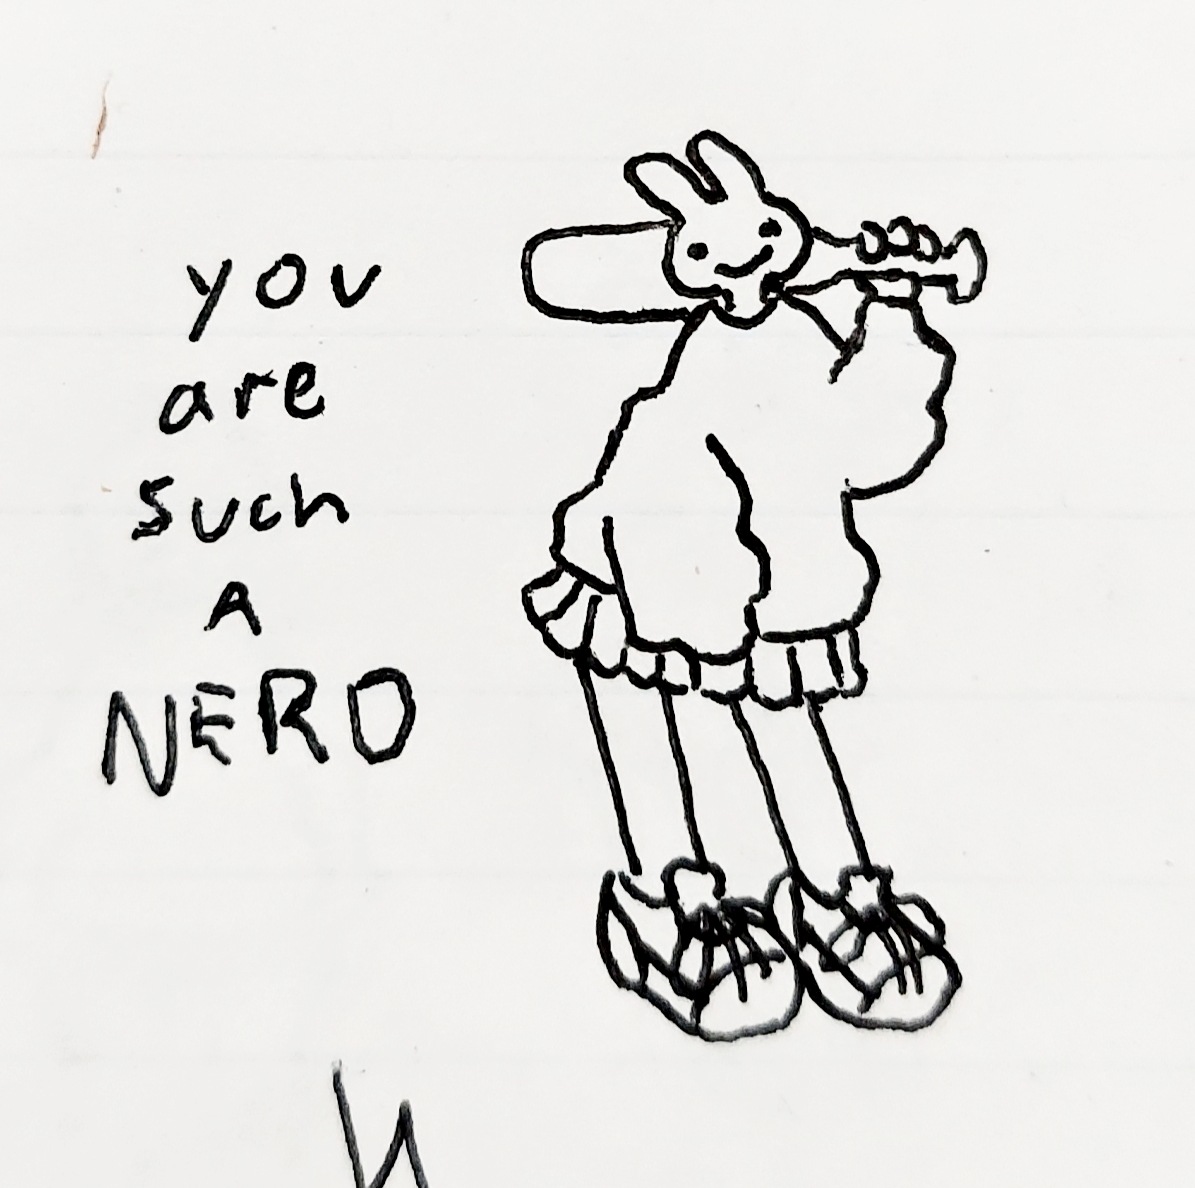 you
are
such
A
NERD